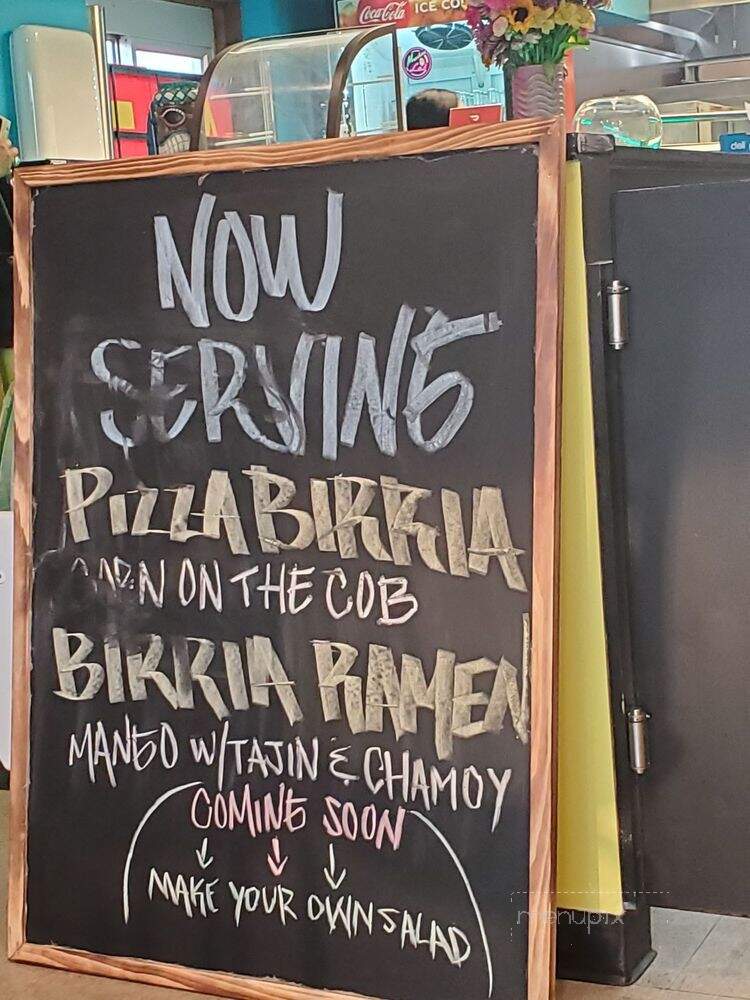 Coca-Cola ICE CO
deli
NOW
SERVING
PIZZA BIRRIA
CORN ON THE COB
BIRRIA RAMEN
MANGO W/TAJIN & CHAMOY
COMING SOON
MAKE YOUR OWN SALAD
menupix